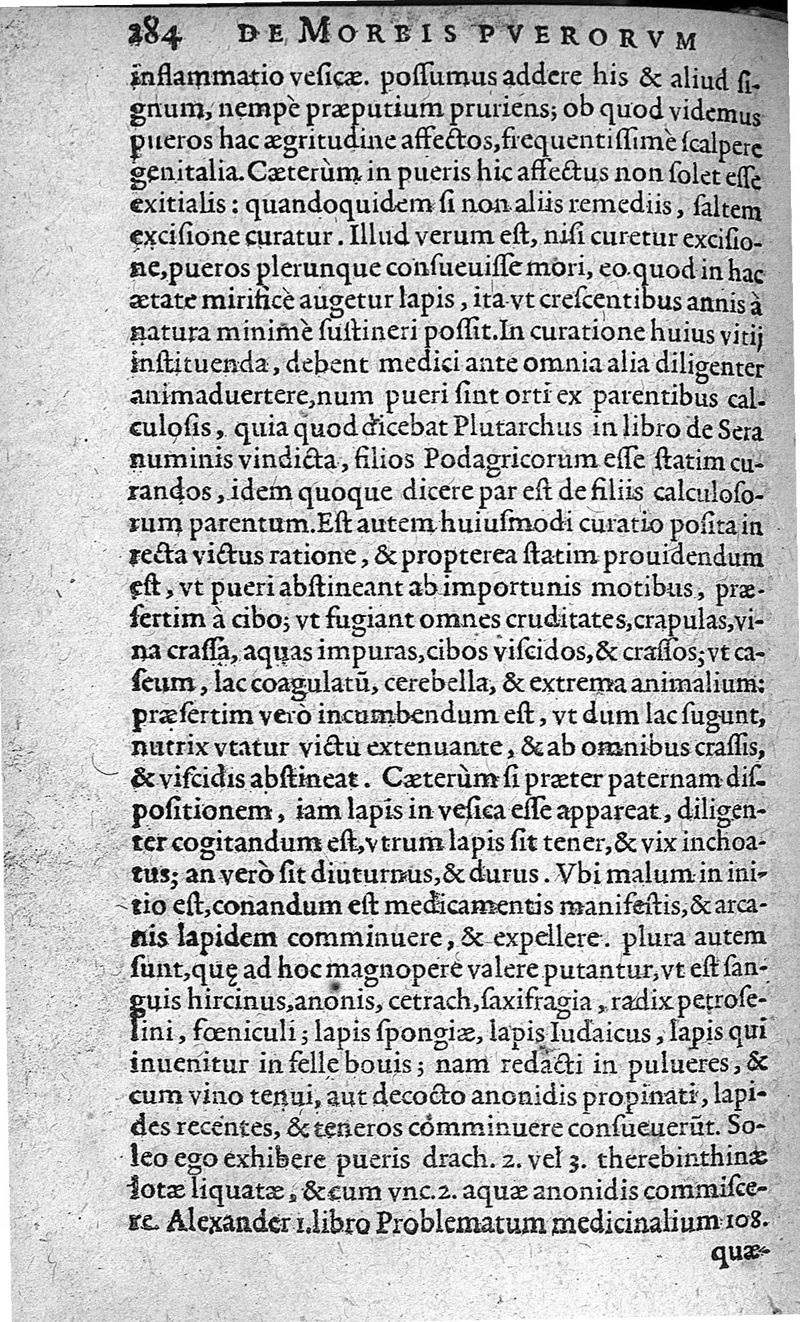 284 DE MORBIS PVERORVM
inflammatio vesicæ. possumus addere his & aliud si-
gnum, nempè præputium pruriens; ob quod videmus
pueros hac ægritudine affectos, frequentissimè scalpere
genitalia. Cæterùm in pueris hic affectus non solet esse
exitialis: quandoquidem si non aliis remediis, saltem
excisione curatur. Illud verum est, nisi curetur excisio-
ne, pueros plerunque consueuisse mori, eo quod in hac
ætate mirificè augetur lapis, ita vt crescentibus annis à
natura minimè sustineri possit. In curatione huius vitij
instituenda, debent medici ante omnia alia diligenter
animaduertere, num pueri sint orti ex parentibus cal-
culosis, quia quod dicebat Plutarchus in libro de Sera
numinis vindicta, filios Podagricorum esse statim cu-
randos, idem quoque dicere par est de filiis calculoso-
rum parentum. Est autem huiusmodi curatio posita in
recta victus ratione, & propterea statim prouidendum
est, vt pueri abstineant ab importunis motibus, præ-
sertim à cibo; vt fugiant omnes cruditates, crapulas, vi-
na crassa, aquas impuras, cibos viscidos, & crassos; vt ca-
seum, lac coagulatū, cerebella, & extrema animalium:
præsertim verò incumbendum est, vt dum lac sugunt,
nutrix vtatur victu extenuante, & ab omnibus crassis,
& viscidis abstineat. Cæterùm si præter paternam dis-
positionem, iam lapis in vesica esse appareat, diligen-
ter cogitandum est, vtrum lapis sit tener, & vix inchoa-
tus; an verò sit diuturnus, & durus. Vbi malum in ini-
tio est, conandum est medicamentis manifestis, & arca-
nis lapidem comminuere, & expellere. plura autem
sunt, quę ad hoc magnopere valere putantur, vt est san-
guis hircinus, anonis, cetrach, saxifragia, radix petrose-
lini, fœniculi; lapis spongiæ, lapis Iudaicus, lapis qui
inuenitur in felle bouis; nam redacti in pulueres, &
cum vino tenui, aut decocto anonidis propinati, lapi-
des recentes, & teneros comminuere consueuerūt. So-
leo ego exhibere pueris drach. 2. vel 3. therebinthinæ
lotæ liquatæ, & cum vnc. 2. aquæ anonidis commisce-
re. Alexander 1. libro Problematum medicinalium 108.
quæ-